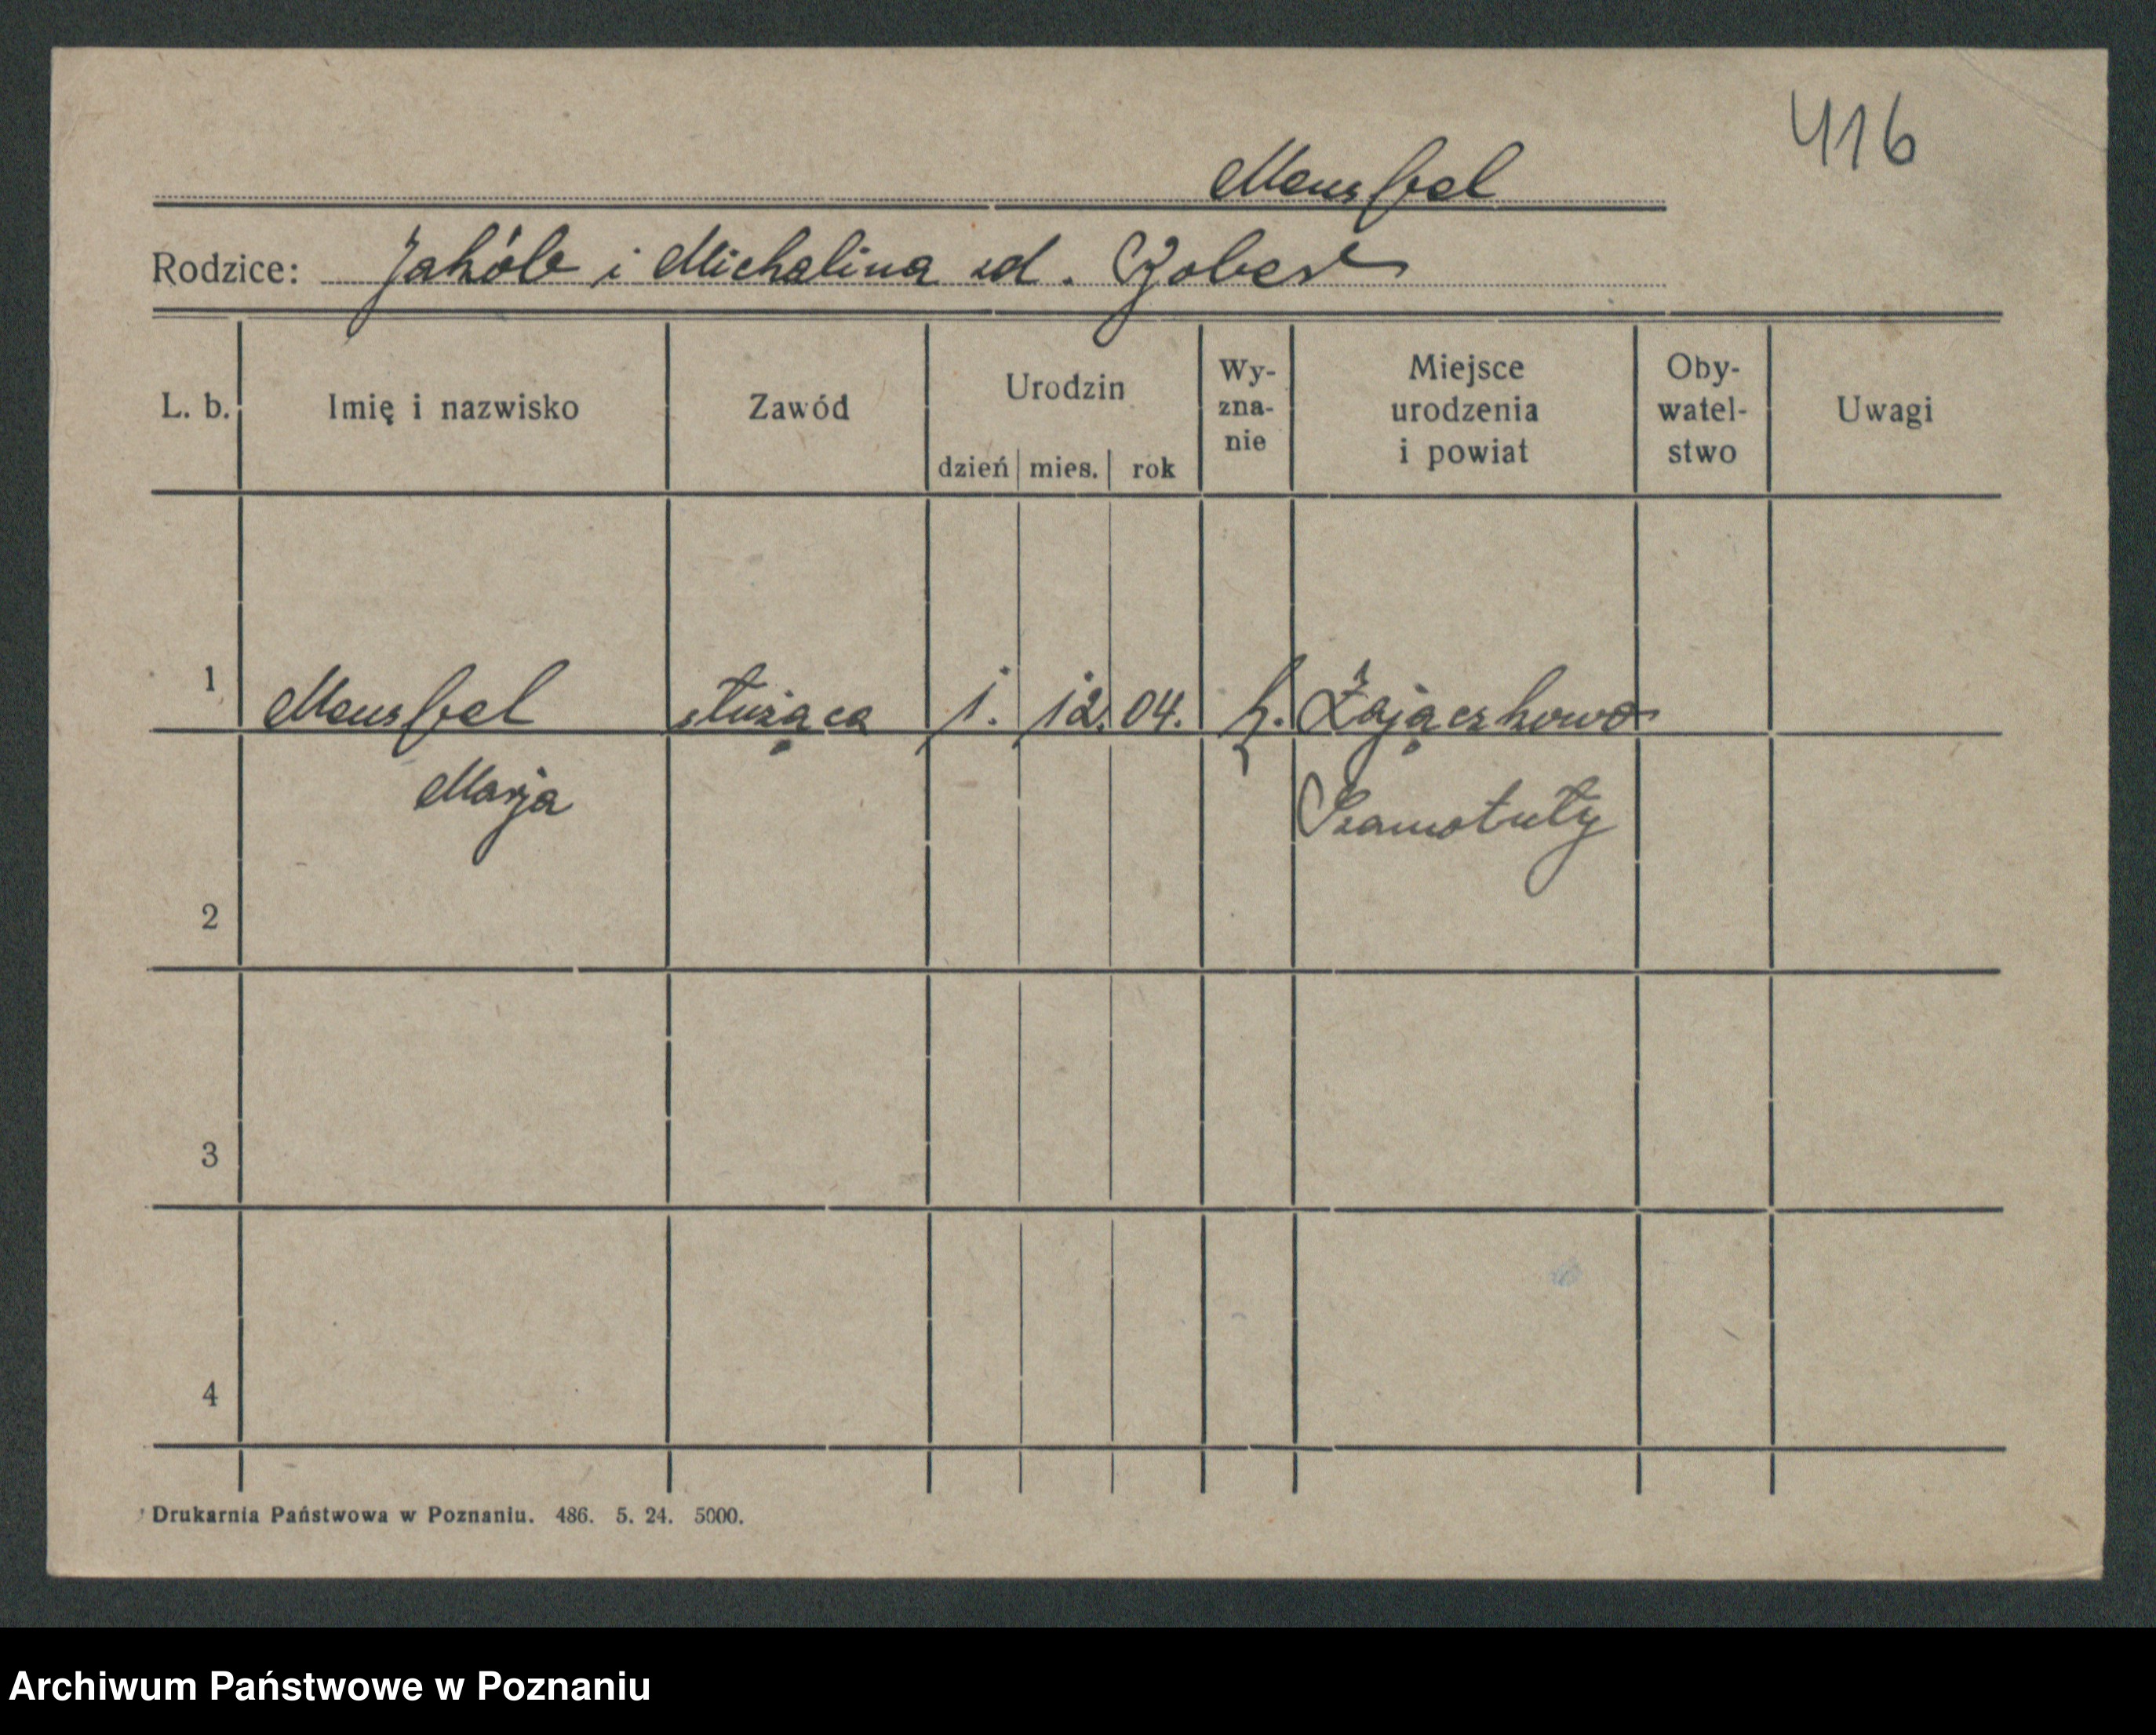 416
Mensfel
Rodzice: Jakób i Michalina zd.
L. b. Imię i nazwisko Zawód Urodzin dzień mies. rok Wy-zna-nie Miejsce urodzenia i powiat Oby-watel-stwo Uwagi
1 Mensfel służąca 1. 12. 04. k. Zajączkowo
Marja Szamotuły
2
3
4
Drukarnia Państwowa w Poznaniu. 486. 5. 24. 5000.
Archiwum Państwowe w Poznaniu